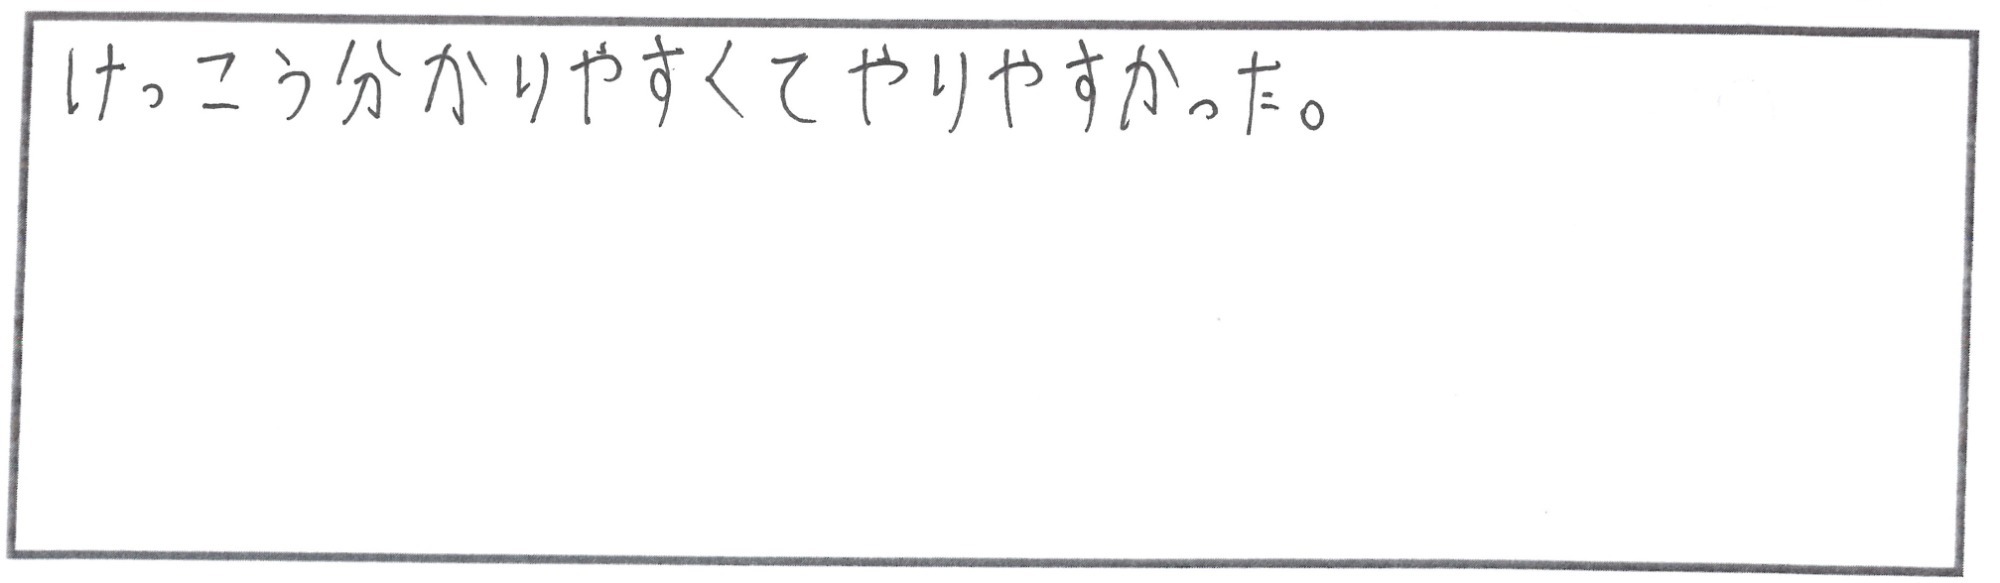 けっこう分かりやすくてやりやすかった。